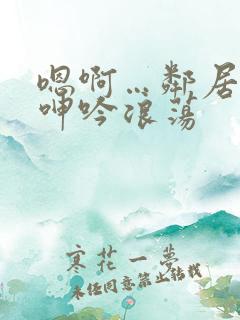 嗯啊…鄰居
呻吟浪蕩
寒花一夢
未经同意禁止转载